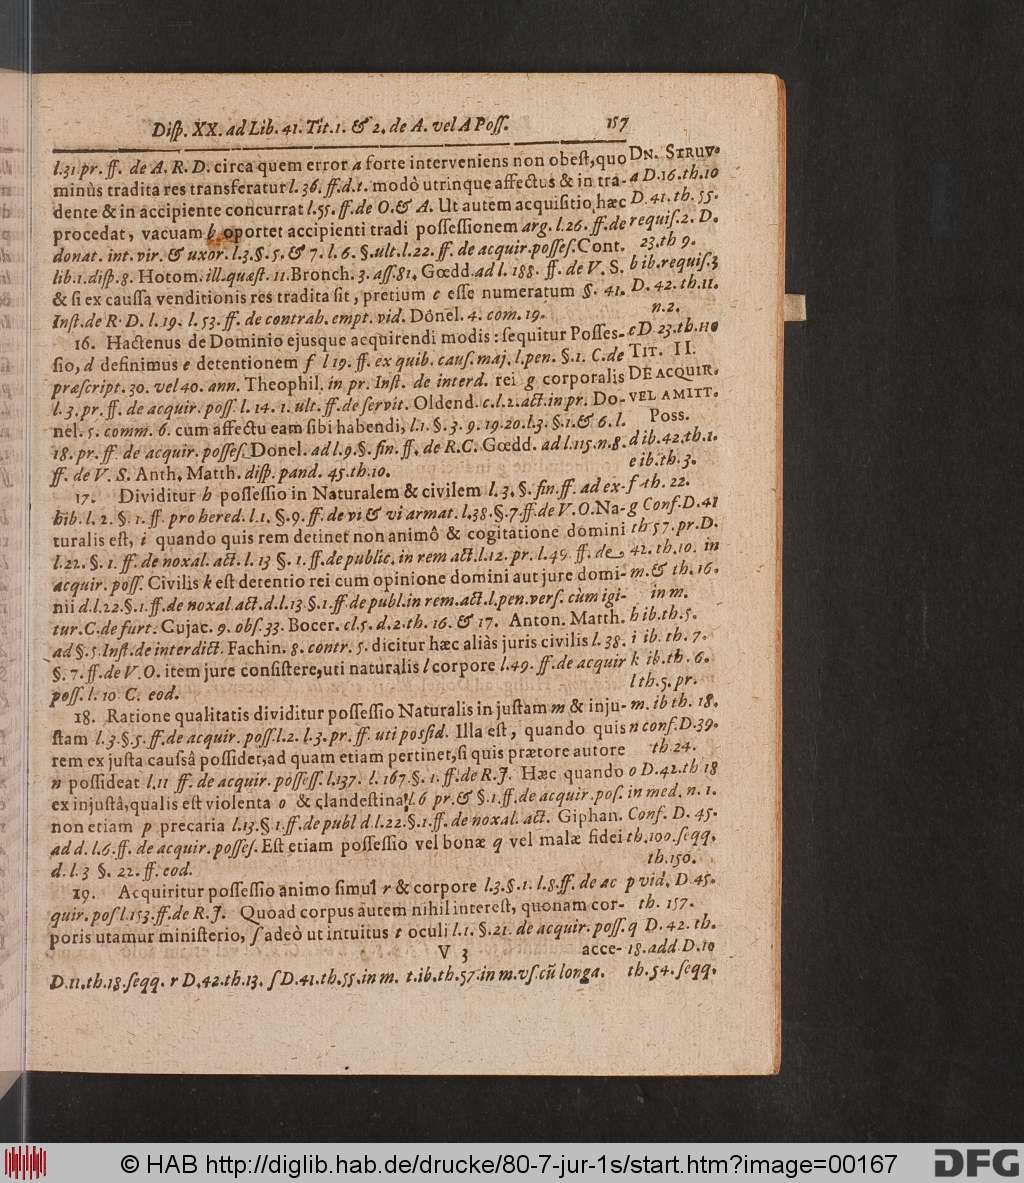 Diſp. XX. ad Lib. 41. Tit. 1. & 2. de A. vel A Poſſ. 157
l.31 pr. ff. de A. R. D. circa quem error a forte interveniens non obeſt, quo
minùs tradita res transferatur l. 36. ff.d.t. modò utrinque affectus & in tra-
dente & in accipiente concurrat l.55. ff.de O.& A. Ut autem acquiſitio hæc
procedat, vacuam b oportet accipienti tradi poſſeſſionem arg. l.26. ff.de
donat. int. vir. & uxor. l.3.§.5.& 7. l. 6. §.ult.l.22. ff. de acquir.poſſeſ. Cont.
lib.1.diſp.8. Hotom. ill.quæſt. 11. Bronch. 3. aſſ.81. Gœdd. ad l. 188. ff. de V. S.
& ſi ex cauſſa venditionis res tradita ſit, pretium c eſſe numeratum §. 41.
Inſt.de R. D. l. 19. l. 53. ff. de contrah. empt. vid. Donel. 4. com. 19.
16. Hactenus de Dominio ejusque acquirendi modis: ſequitur Poſſeſ-
ſio, d definimus e detentionem f l 19. ff. ex quib. cauſ. maj. l.pen. §.1. C.de
præſcript. 30. vel 40. ann. Theophil. in pr. Inſt. de interd. rei g corporalis
l. 3. pr. ff. de acquir. poſſ. l. 14. 1. ult. ff. de ſervit. Oldend. c.l.2.act.in pr. Do-
nel. 5. comm. 6. cum affectu eam ſibi habendi, l.1. §.3. 9. 19.20.l.3. §.1.& 6. l.
18. pr. ff. de acquir. poſſeſ. Donel. ad l.9.§. fin. ff. de R.C. Gœdd. ad l.115.n.8.
ff. de V. S. Anth. Matth. diſp. pand. 45. th.10.
17. Dividitur h poſſeſſio in Naturalem & civilem l. 3. §. fin. ff. ad ex-
hib. l. 2. §. 1. ff. pro hered. l.1. §.9. ff. de vi & vi armat. l.38.§.7.ff.de V.O. Na-
turalis eſt, i quando quis rem detinet non animô & cogitatione domini
l.22. §. 1. ff. de noxal. act. l. 13 §. 1. ff.de public. in rem act.l.12. pr. l.49. ff. de
acquir. poſſ. Civilis k eſt detentio rei cum opinione domini aut jure domi-
nii d.l.22.§.1.ff.de noxal act.d.l.13 §.1.ff.de publ.in rem.act.l.pen.verſ. cùm igi-
tur. C.de furt. Cujac. 9. obſ. 33. Bocer. cl.5. d.2.th. 16. & 17. Anton. Matth.
ad §.5.Inſt.de interdict. Fachin. 8. contr. 5. dicitur hæc aliàs juris civilis l. 38.
§. 7. ff.de V.O. item jure conſiſtere, uti naturalis l corpore l.49. ff.de acquir
poſſ. l. 10 C. eod.
18. Ratione qualitatis dividitur poſſeſſio Naturalis in juſtam m & inju-
ſtam l.3.§.5.ff.de acquir. poſſ.l.2. l.3.pr. ff. uti poſſid. Illa eſt, quando quis
rem ex juſta cauſsâ poſſidet, ad quam etiam pertinet, ſi quis prætore autore
n poſſideat l.11 ff. de acquir. poſſeſſ. l.137. l. 167.§. 1. ff.de R.J. Hæc quando
ex injuſtâ, qualis eſt violenta o & clandeſtina l.6 pr.& §.1.ff.de acquir.poſ.
non etiam p precaria l.13.§ 1.ff.de publ d.l.22.§.1.ff. de noxal. act. Giphan.
ad d. l.6.ff. de acquir. poſſeſ. Eſt etiam poſſeſſio vel bonæ q vel malæ fidei
d. l. 3 §. 22. ff. eod.
19. Acquiritur poſſeſſio animo ſimul r & corpore l.3.§.1. l.8.ff. de ac
quir. poſ l.153.ff.de R.J. Quoad corpus autem nihil intereſt, quonam cor-
poris utamur miniſterio, ſ adeò ut intuitus t oculi l.1. §.21. de acquir. poſſ.
V 3 acce-
D.11.th.18.ſeqq. r D.42.th.13. ſ D.41.th.55.in m. t.ib.th.57.in m.vſ.cũ longa.
DN. STRUV.
a D.16.th.10
D. 41. th. 55.
requiſ.2. D.
23.th 9.
b ib.requiſ.3
D. 42. th.11.
n.2.
c D. 23.th.110
TIT. II.
DE ACQUIR.
VEL AMITT.
Poss.
d ib.42.th.1.
e ib.th.3.
f th. 22.
g Conf.D.41
th 57.pr.D.
42. th.10. in
m.& th.16.
in m.
h ib.th.5.
i ib. th. 7.
k ib.th. 6.
l th.5.pr.
m. ib th. 18.
n conf.D.39.
th 24.
o D.42.th 18
in med. n. 1.
Conf. D. 45.
th.100.ſeqq.
th.150.
p vid. D.45.
th. 157.
q D. 42. th.
18.add.D.10
th.54.ſeqq.
© HAB http://diglib.hab.de/drucke/80-7-jur-1s/start.htm?image=00167
DFG